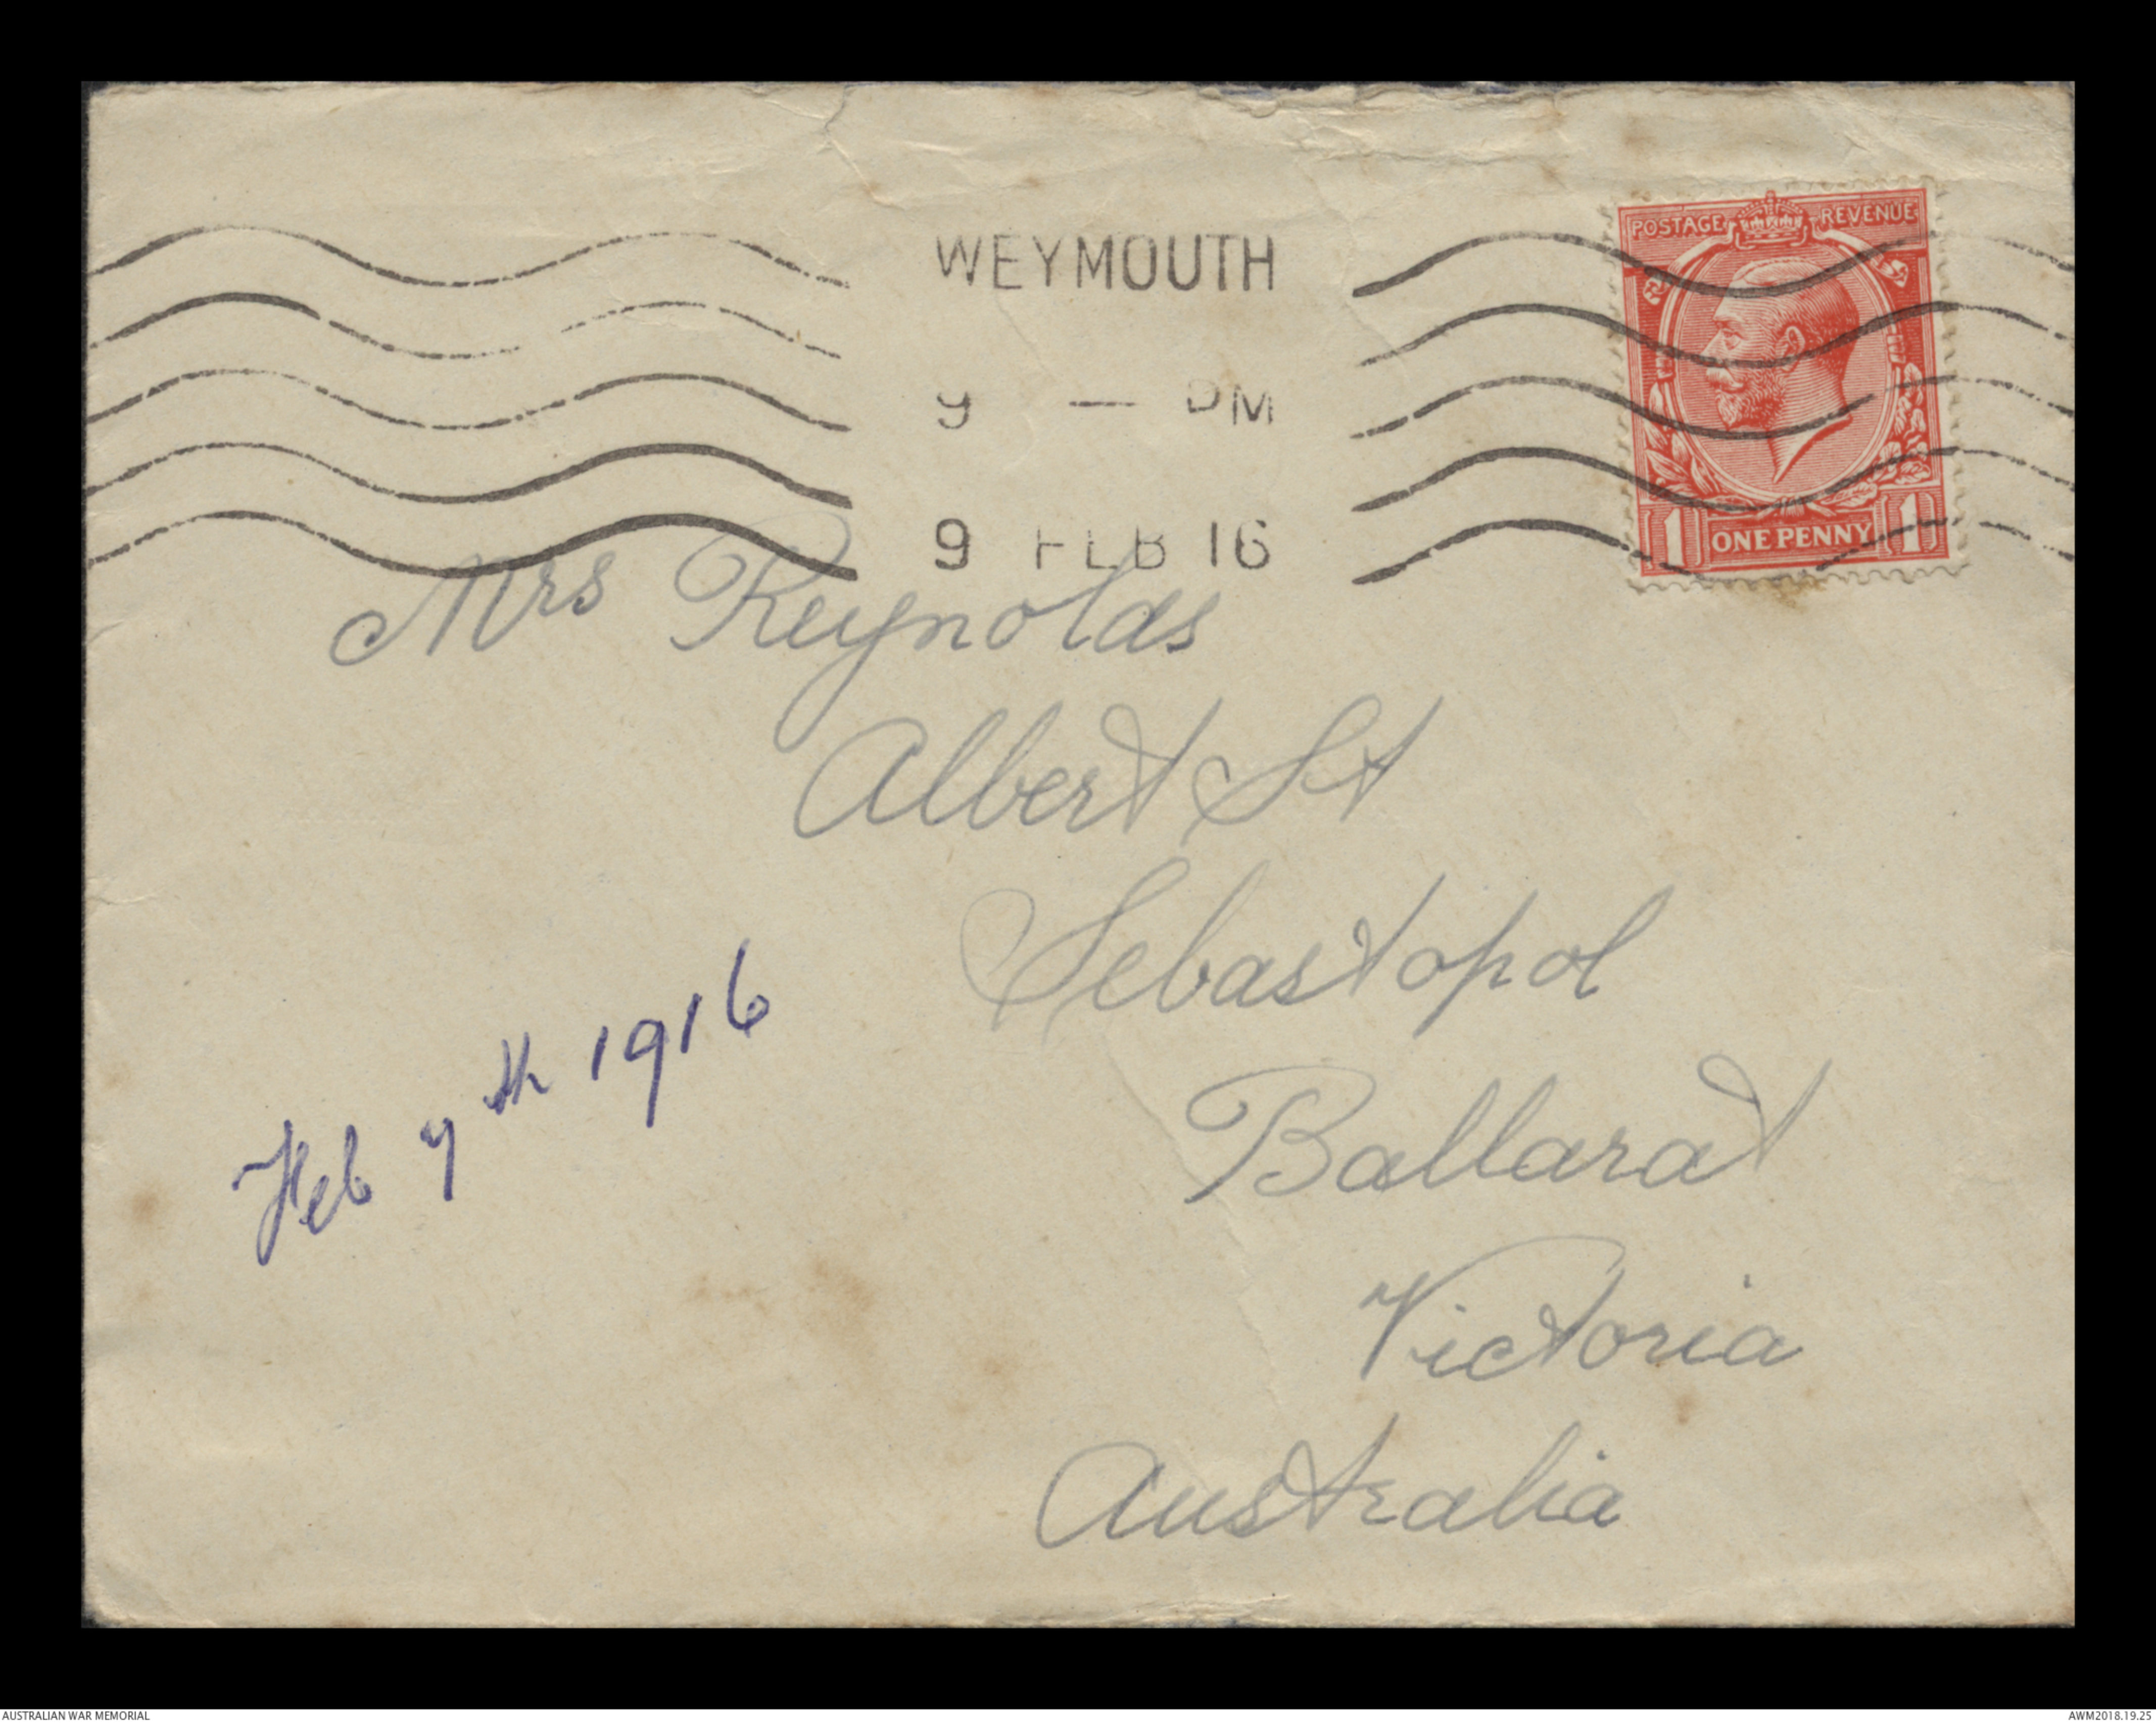 WEYMOUTH
POSTAGE REVENUE
9 — PM
9 FEB 16
1 ONE PENNY 1
Mrs Reynolds
Albert St
Sebastopol
Ballarat
Victoria
Australia
Feb 7th 1916
AUSTRALIAN WAR MEMORIAL
AWM2018.19.25